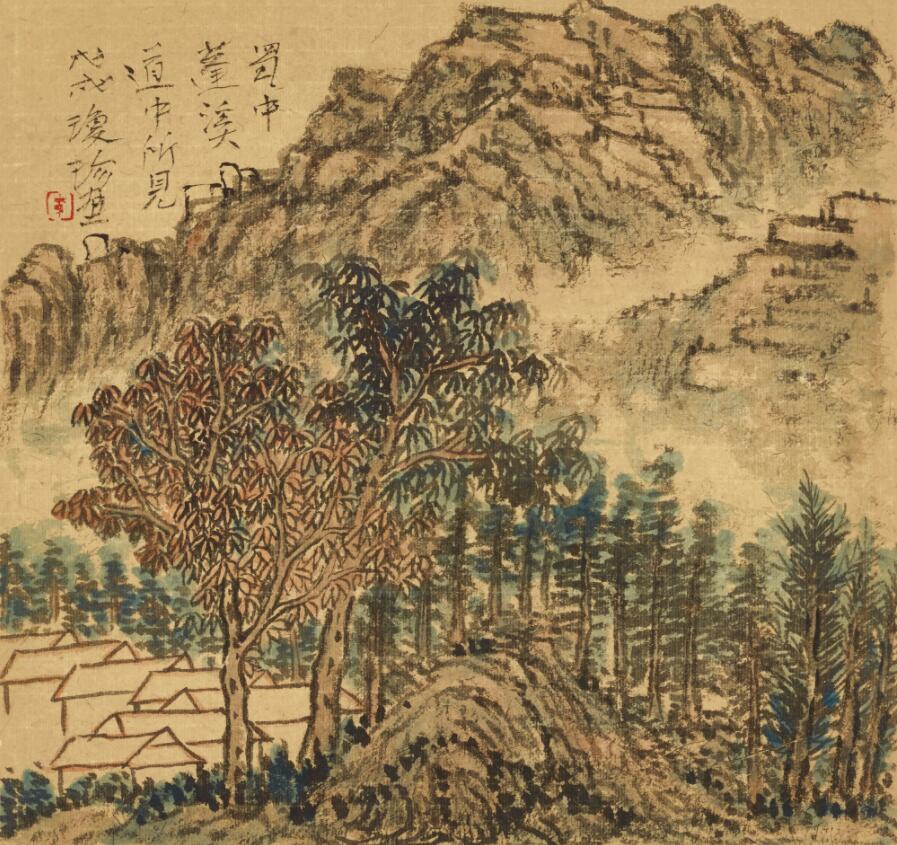 蜀中
蓬溪
道中所見
戊戌瓊珍画